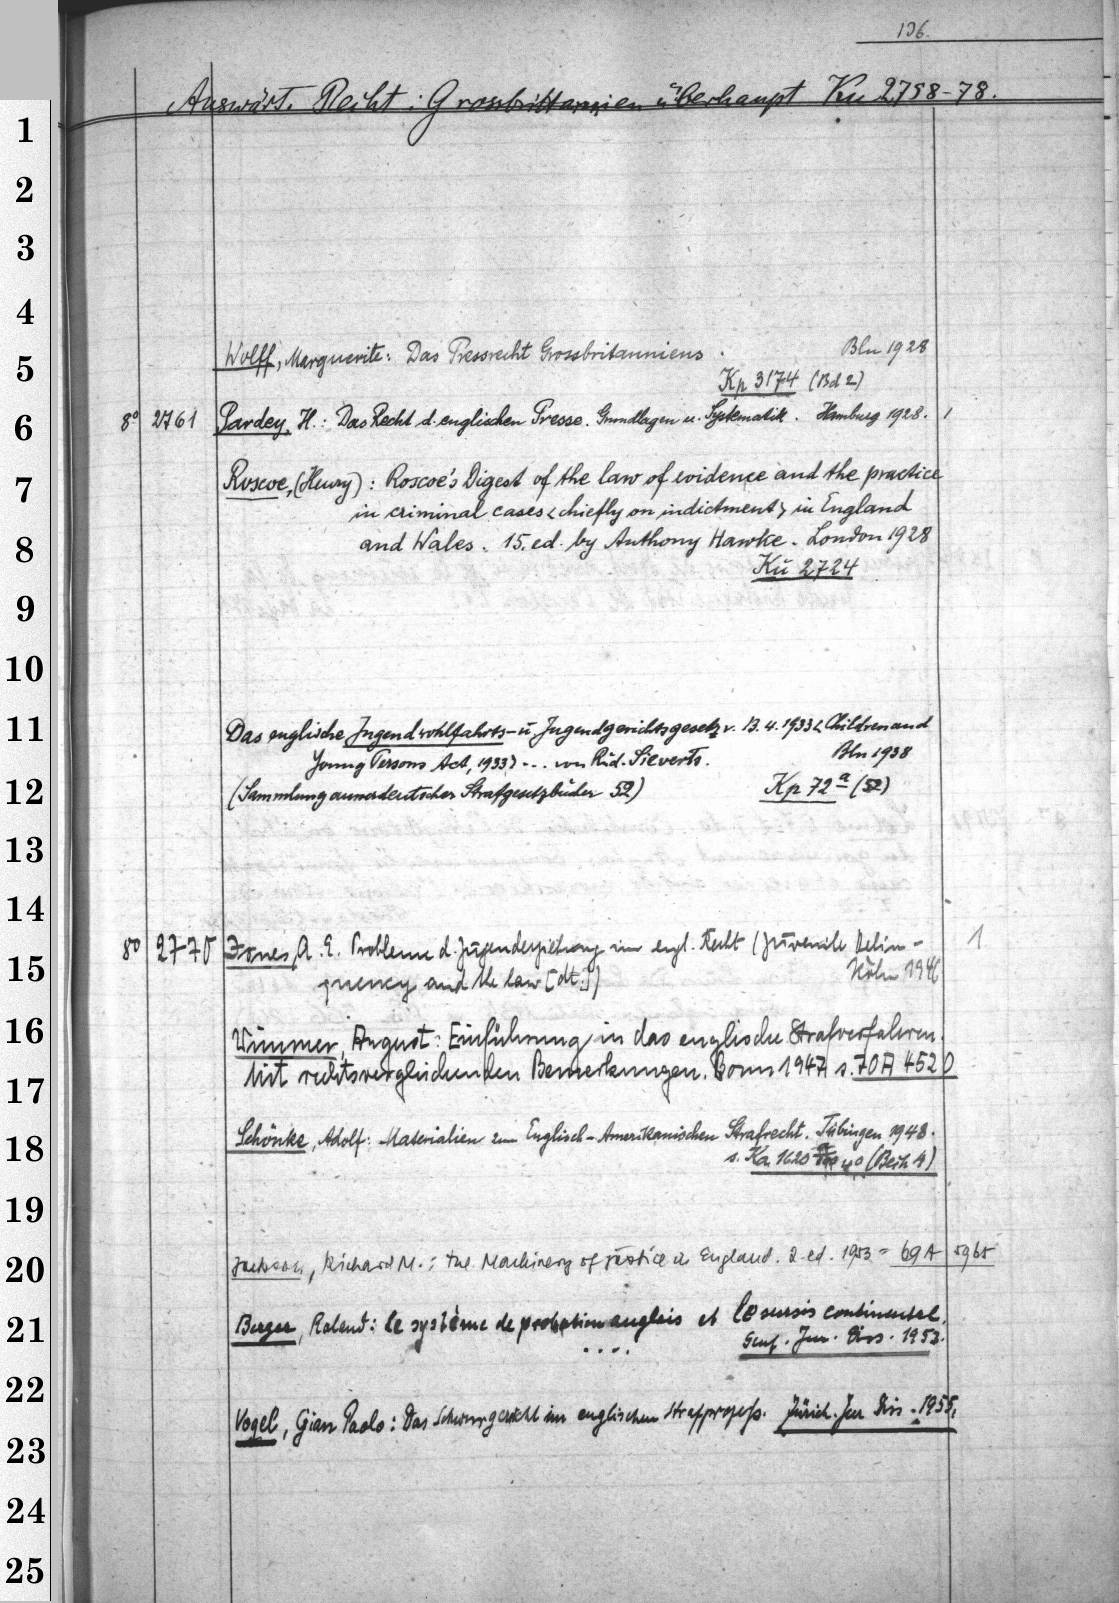 136.
Auswärt. Recht: Grossbrittannien überhaupt Ku 2758-78.
1
2
3
4
Wolff, Marguerite: Das Pressrecht Grossbritanniens. Bln 1928
5
Kp 3174 (Bd 2)
6
8° 2761 Pardey, H.: Das Recht d. englischen Presse. Grundlagen u. Systematik. Hamburg 1928. 1
7
Roscoe, (Henry): Roscoe's Digest of the law of evidence and the practice
in criminal cases <chiefly on indictment> in England
8
and Wales. 15. ed. by Anthony Hawke. London 1928
Kü 2724
9
10
11
Das englische Jugendwohlfahrts- u. Jugendgerichtsgesetz v. 13.4.1933 <Children and
Young Persons Act, 1933> ... von Rud. Sieverts. Bln 1938
12
(Sammlung ausserdeutscher Strafgesetzbücher 52) Kp 72 a (52)
13
14
8° 2770 Jones, A. E. Probleme d. Jugenderziehung im engl. Recht (Juvenile Delin-
15
quency and the law [dt.]) Köln 1946
1
16
Wimmer, August: Einführung in das englische Strafverfahren.
17
Mit rechtsvergleichenden Bemerkungen. Bonn 1947 s. 70 A 4520
18
Schönke, Adolf: Materialien zum Englisch-Amerikanischen Strafrecht. Tübingen 1948.
s. Ka 1620 (Beih 4)
19
20
Jackson, Richard M.: The Machinery of justice in England. 2. ed. 1953 = 69 A 5965
21
Berger, Roland: Le système de probation anglais et le sursis continental.
.... Genf. Jur. Diss. 1953.
22
23
Vogel, Gian Paolo: Das Schwurgericht im englischen Strafprozess. Zürich. Jur. Diss. 1955.
24
25